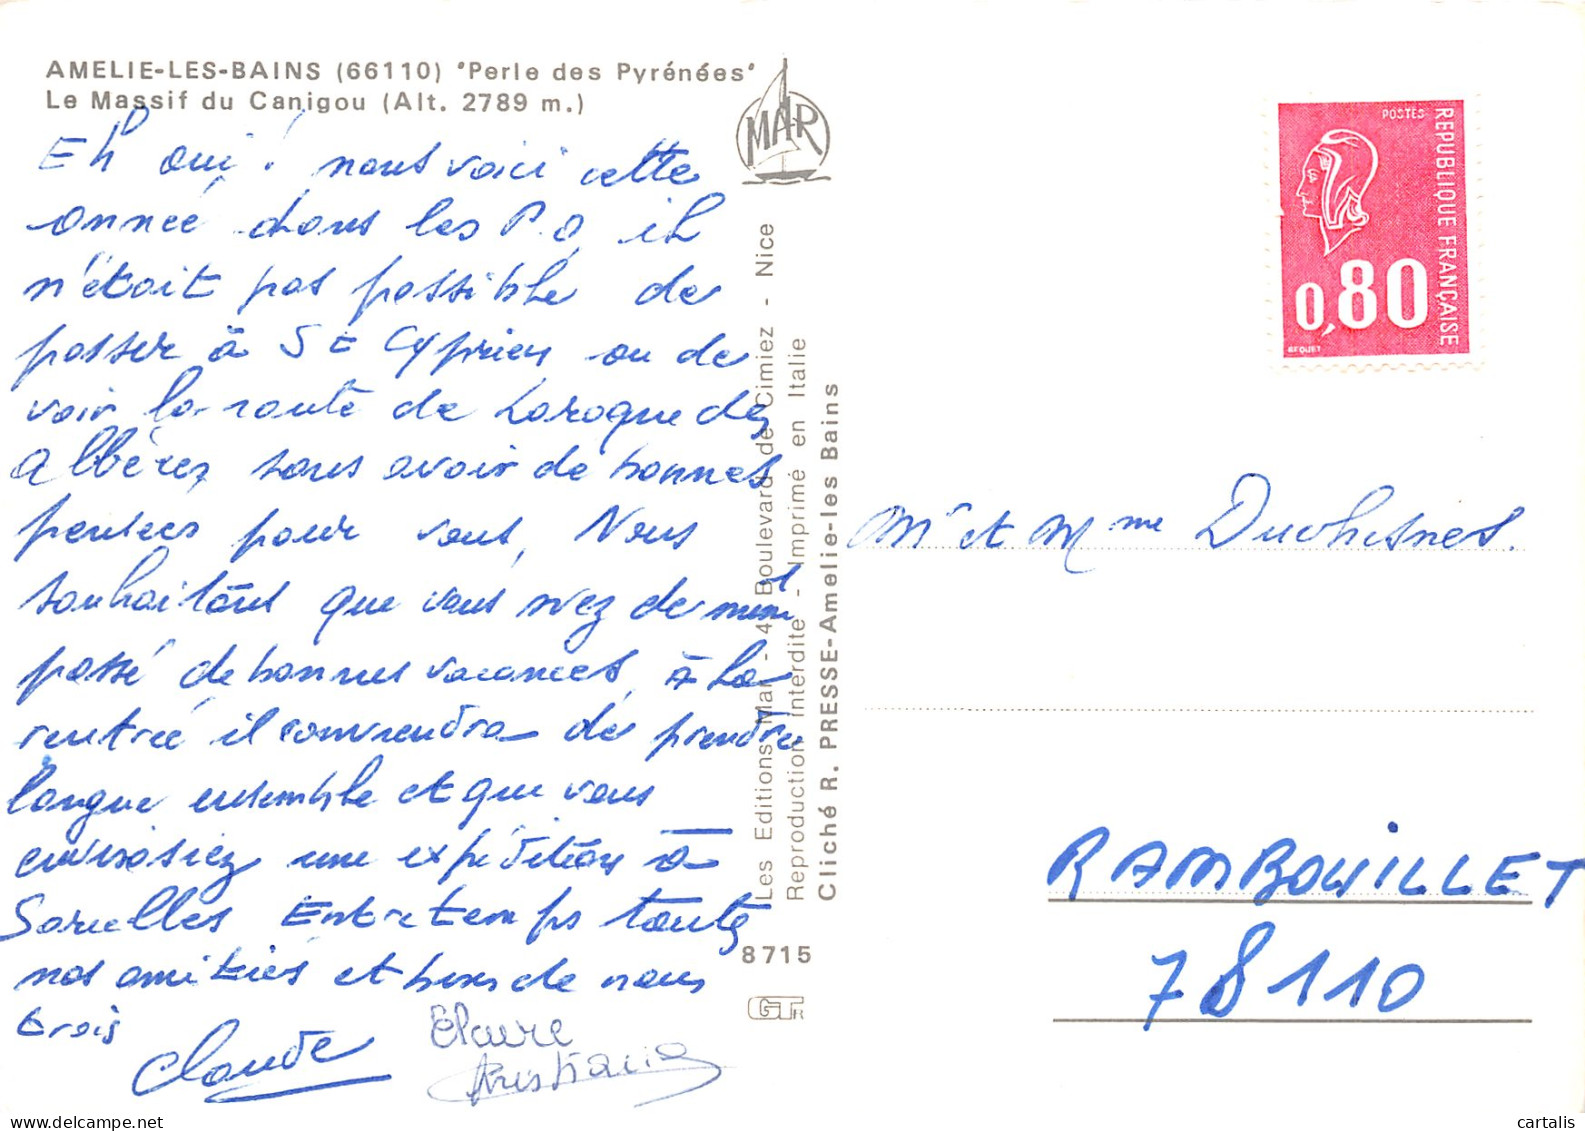 AMELIE-LES-BAINS (66110) "Perle des Pyrénées"
Le Massif du Canigou (Alt. 2789 m.)
Eh oui! nous voici cette
année dans les P.O, il
n'était pas possible de
passer à St Cyprien ou de
voir la route de Laroque des
Albères sans avoir de bonnes
pensées pour vous, Nous
souhaitons que vous avez de
passé de bonnes vacances, à la
rentrée il conviendra de prendre
langue ensemble et que vous
envisagiez une expédition à
Sarcelles Entretemps toutes
nos amitiés et bises de nous
trois
Claude
Christiane
MAR
Les Editions Mar - 4 Boulevard de Cimiez - Nice
Reproduction Interdite - Imprimé en Italie
Cliché R. PRESSE-Amelie-les Bains
8715
GTR
POSTES
REPUBLIQUE FRANÇAISE
0,80
BEQUET
Mr et Mme Duchesnes.
RAMBOUILLET
78110
cartalis